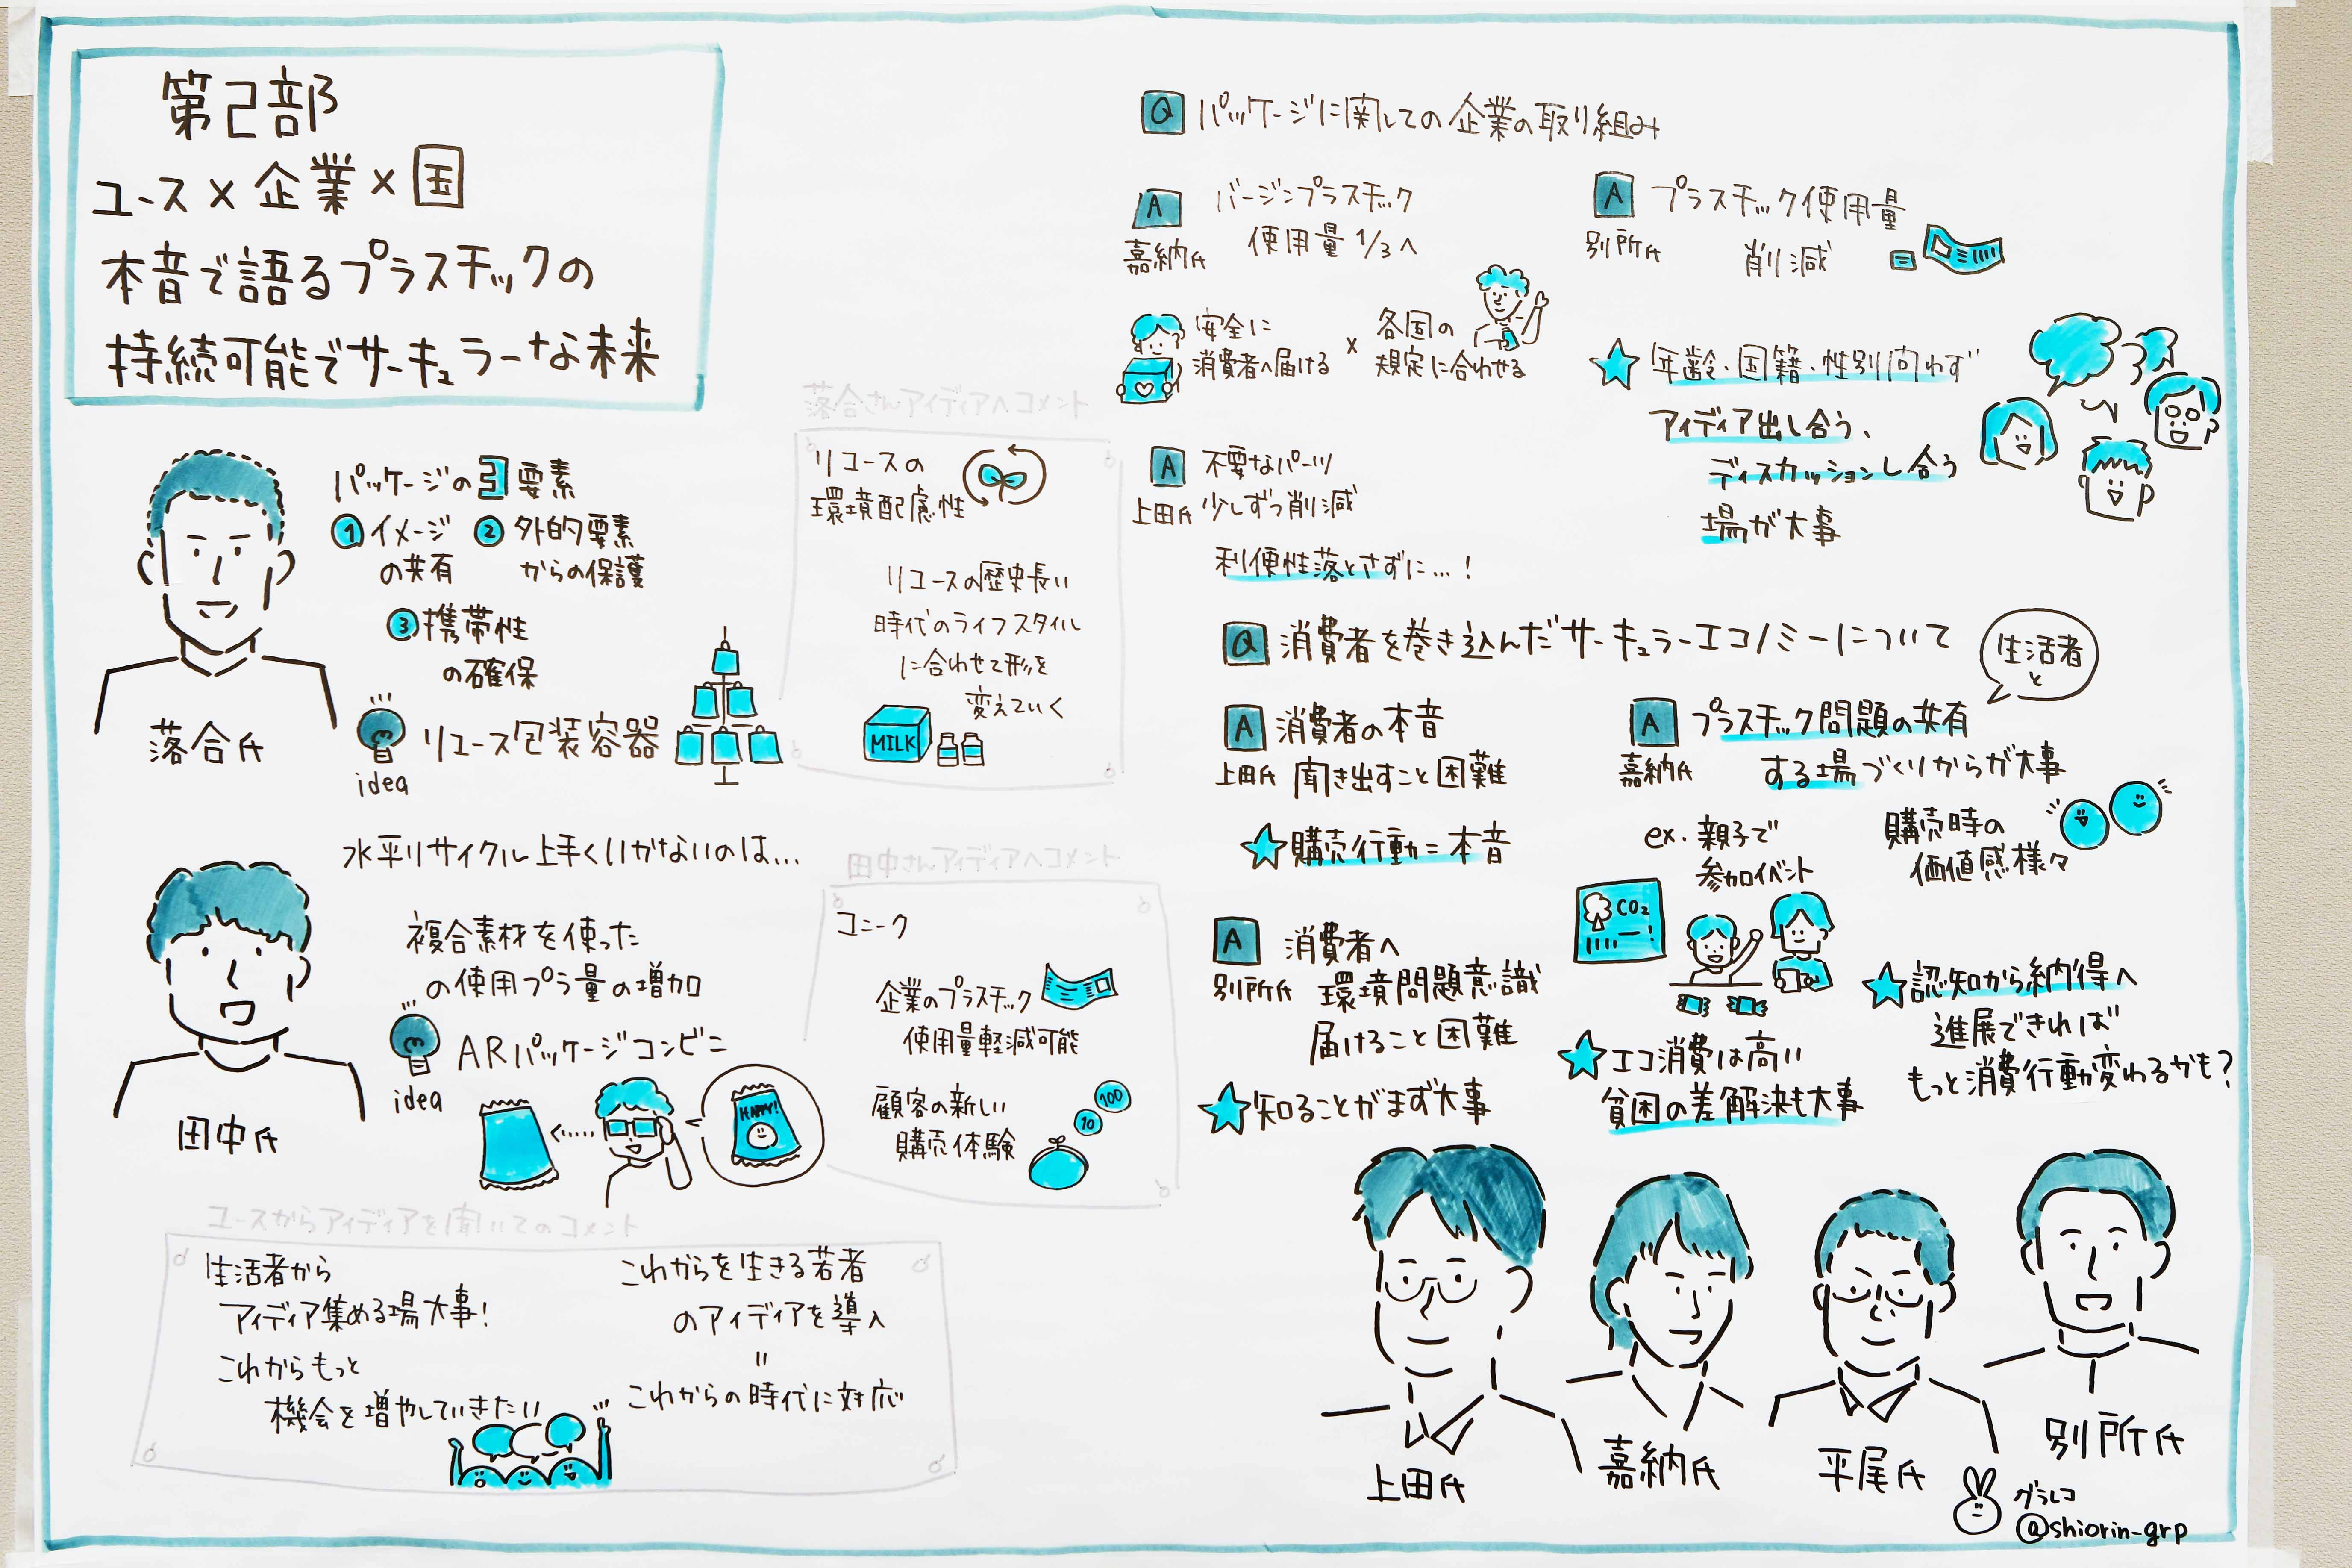 第2部
ユース×企業×国
本音で語るプラスチックの
持続可能でサーキュラーな未来
パッケージの3要素
① イメージ
の共有
② 外的要素
からの保護
③ 携帯性
の確保
落合氏
idea
リユース包装容器
落合さんアイディアへコメント
リユースの
環境配慮性
リユースの歴史長い
時代のライフスタイル
に合わせて形を
変えていく
MILK
水平リサイクル上手くいかないのは…
複合素材を使った
の使用プラ量の増加
田中氏
idea
ARパッケージコンビニ
HAPPY!
田中さんアイディアへコメント
ユニーク
企業のプラスチック
使用量軽減可能
顧客の新しい
購売体験
100
10
ユースからアイディアを聞いてのコメント
生活者から
アイディア集める場大事!
これからもっと
機会を増やしていきたい
これからを生きる若者
のアイディアを導入
=
これからの時代に対応
Q パッケージに関しての企業の取り組み
A バージンプラスチック
嘉納氏 使用量1/3へ
安全に
消費者へ届ける
×
各国の
規定に合わせる
A プラスチック使用量
別所氏 削減
年齢・国籍・性別問わず
アイディア出し合う、
ディスカッションし合う
場が大事
A 不要なパーツ
上田氏 少しずつ削減
利便性落とさずに…!
Q 消費者を巻き込んだサーキュラーエコノミーについて
生活者
と
A 消費者の本音
上田氏 聞き出すこと困難
購売行動=本音
A プラスチック問題の共有
嘉納氏 する場づくりからが大事
ex. 親子で
参加イベント
購売時の
価値感様々
CO2
A 消費者へ
別所氏 環境問題意識
届けること困難
知ることがまず大事
エコ消費は高い
貧困の差解決も大事
認知から納得へ
進展できれば
もっと消費行動変わるかも?
上田氏
嘉納氏
平尾氏
別所氏
グラレコ
@shiorin-grp